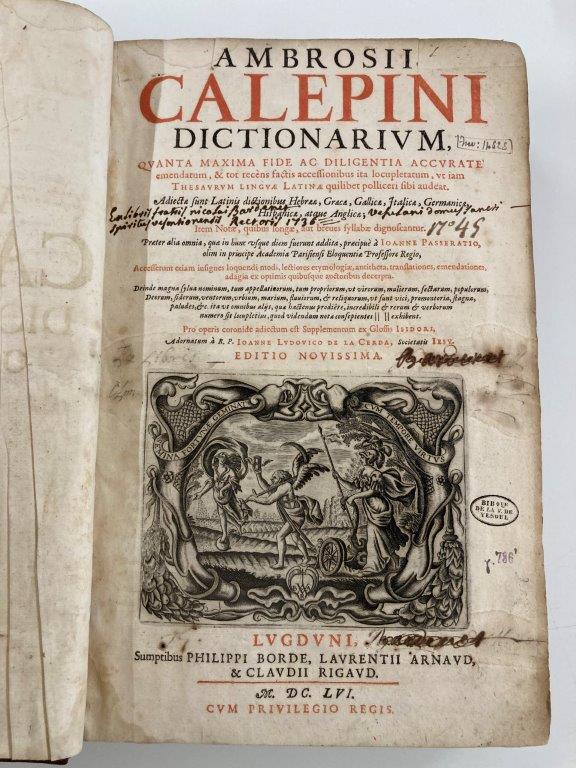 AMBROSII
CALEPINI
DICTIONARIVM,
QVANTA MAXIMA FIDE AC DILIGENTIA ACCVRATE
emendatum, & tot recèns factis accessionibus ita locupletatum, vt iam
THESAVRVM LINGVÆ LATINÆ quilibet polliceri sibi audeat.
Adiectæ sunt Latinis dictionibus Hebrææ, Græcæ, Gallicæ, Italicæ, Germanicæ,
Hispanicæ, atque Anglicæ,
Ex libris fratris nicolai
spiritus vesuntionensis Rectoris 1736
n° 45
Item Notæ, quibus longæ, aut breues syllabæ dignoscantur.
Præter alia omnia, quæ in hunc vsque diem fuerunt addita, præcipuè à IOANNE PASSERATIO,
olim in principe Academia Parisiensi Eloquentiæ Professore Regio,
Accesserunt etiam insignes loquendi modi, lectiores etymologiæ, antitheta, translationes, emendationes,
adagia ex optimis quibusque auctoribus decerpta.
Deinde magna sylua nominum, tum appellatiuorum, tum propriorum, vt virorum, mulierum, sectarum, populorum,
Deorum, siderum, ventorum, vrbium, marium, fluuiorum, & reliquorum, vt sunt vici, promontoria, stagna,
paludes, &c. ita vt omnibus alijs, quæ hactenus prodiêre, incredibili & rerum & verborum
numero sit locupletius, quod videndum notæ consepientes [] [] exhibent.
Pro operis coronide adiectum est Supplementum ex Glossis ISIDORI,
Adornatum à R. P. IOANNE LVDOVICO DE LA CERDA, Societatis IESV.
EDITIO NOVISSIMA.
Inv: 14525
VIRTVTE
BIBQUE
DE LA V. DE
VESOUL
786
LVGDVNI,
Sumptibus PHILIPPI BORDE, LAVRENTII ARNAVD,
& CLAVDII RIGAVD.
M. DC. LVI.
CVM PRIVILEGIO REGIS.